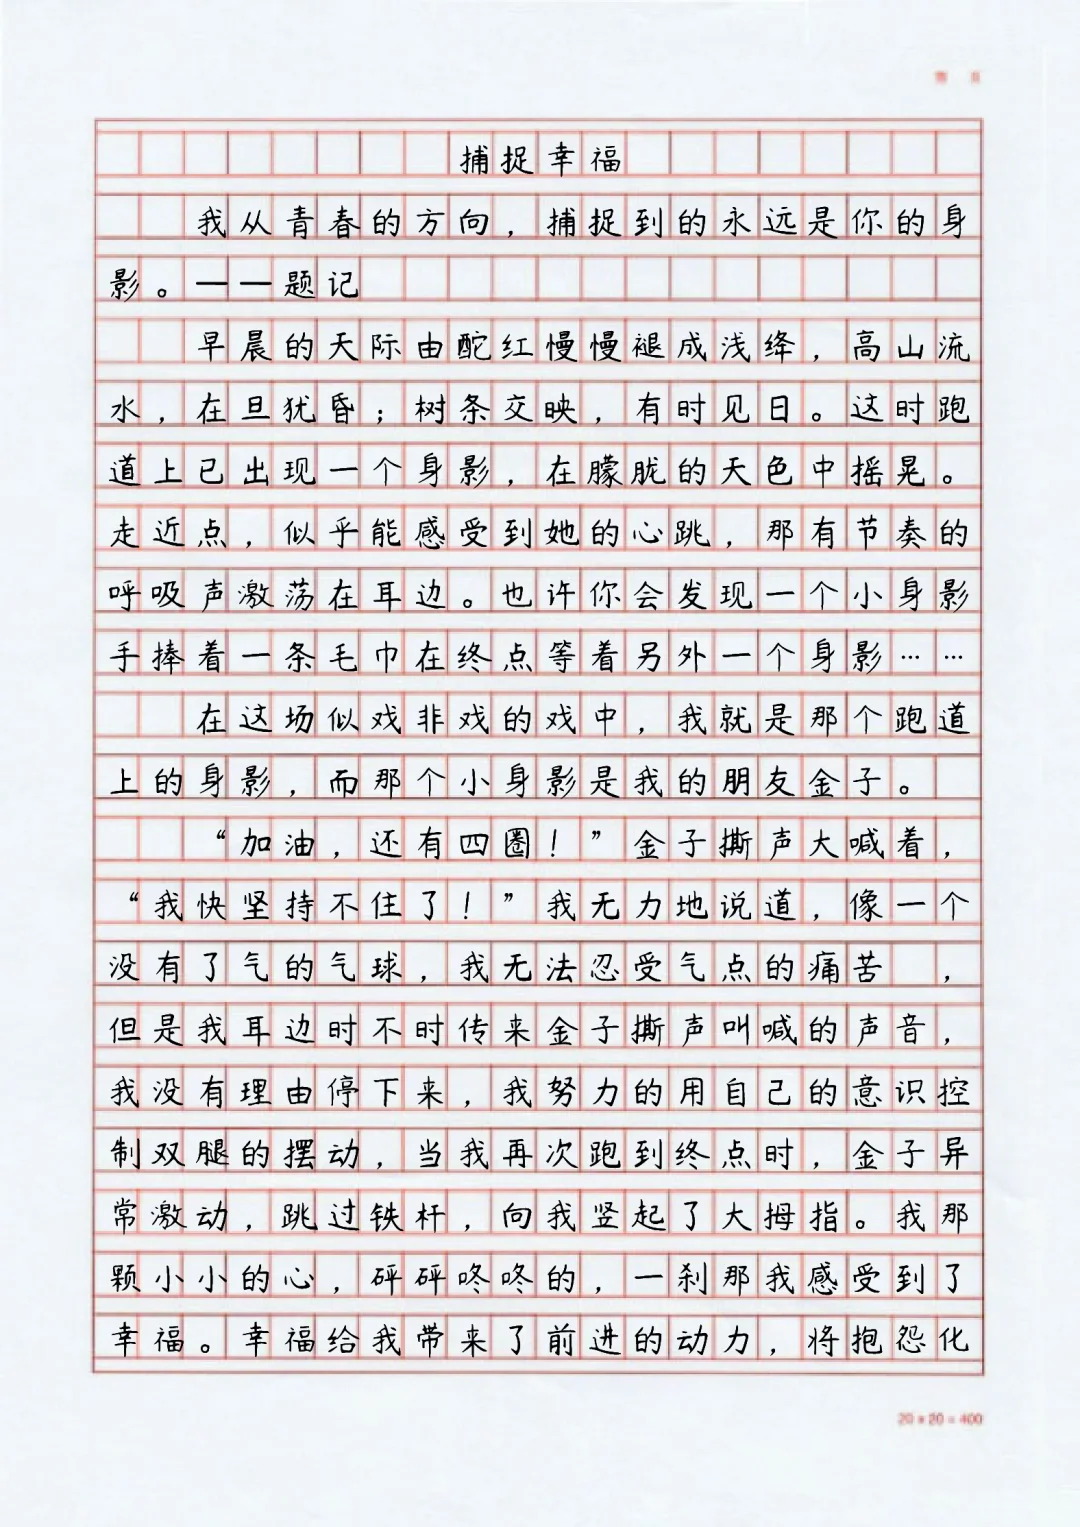 捕捉幸福
我从青春的方向，捕捉到的永远是你的身
影。——题记
早晨的天际由酡红慢慢褪成浅绛，高山流
水，在旦犹昏；树条交映，有时见日。这时跑
道上已出现一个身影，在朦胧的天色中摇晃。
走近点，似乎能感受到她的心跳，那有节奏的
呼吸声激荡在耳边。也许你会发现一个小身影
手捧着一条毛巾在终点等着另外一个身影……
在这场似戏非戏的戏中，我就是那个跑道
上的身影，而那个小身影是我的朋友金子。
“加油，还有四圈！”金子撕声大喊着，
“我快坚持不住了！”我无力地说道，像一个
没有了气的气球，我无法忍受气点的痛苦　，
但是我耳边时不时传来金子撕声叫喊的声音，
我没有理由停下来，我努力的用自己的意识控
制双腿的摆动，当我再次跑到终点时，金子异
常激动，跳过铁杆，向我竖起了大拇指。我那
颗小小的心，砰砰咚咚的，一刹那我感受到了
幸福。幸福给我带来了前进的动力，将抱怨化
20×20=400